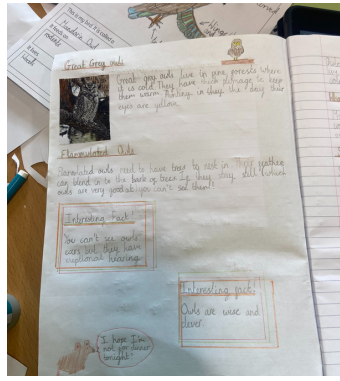 This is my bird it is called a
Owl
it feeds on
rodents
it lives
Wood
Great Grey owls
Great grey owls live in pine forests where
it is cold. They have thick plumage to keep
them warm. Hunting in the day their
eyes are yellow.
Flamulated Owls
Flamulated owls need to have trees to nest in. Their feathers
can blend in to the bark of trees if they stay still which
owls are very good at you can't see them!
Interesting Fact!
You can't see owls
ears but they have
exptional hearing.
Interesting fact!
Owls are wise and
clever.
I hope I'm
not for dinner
tonight!